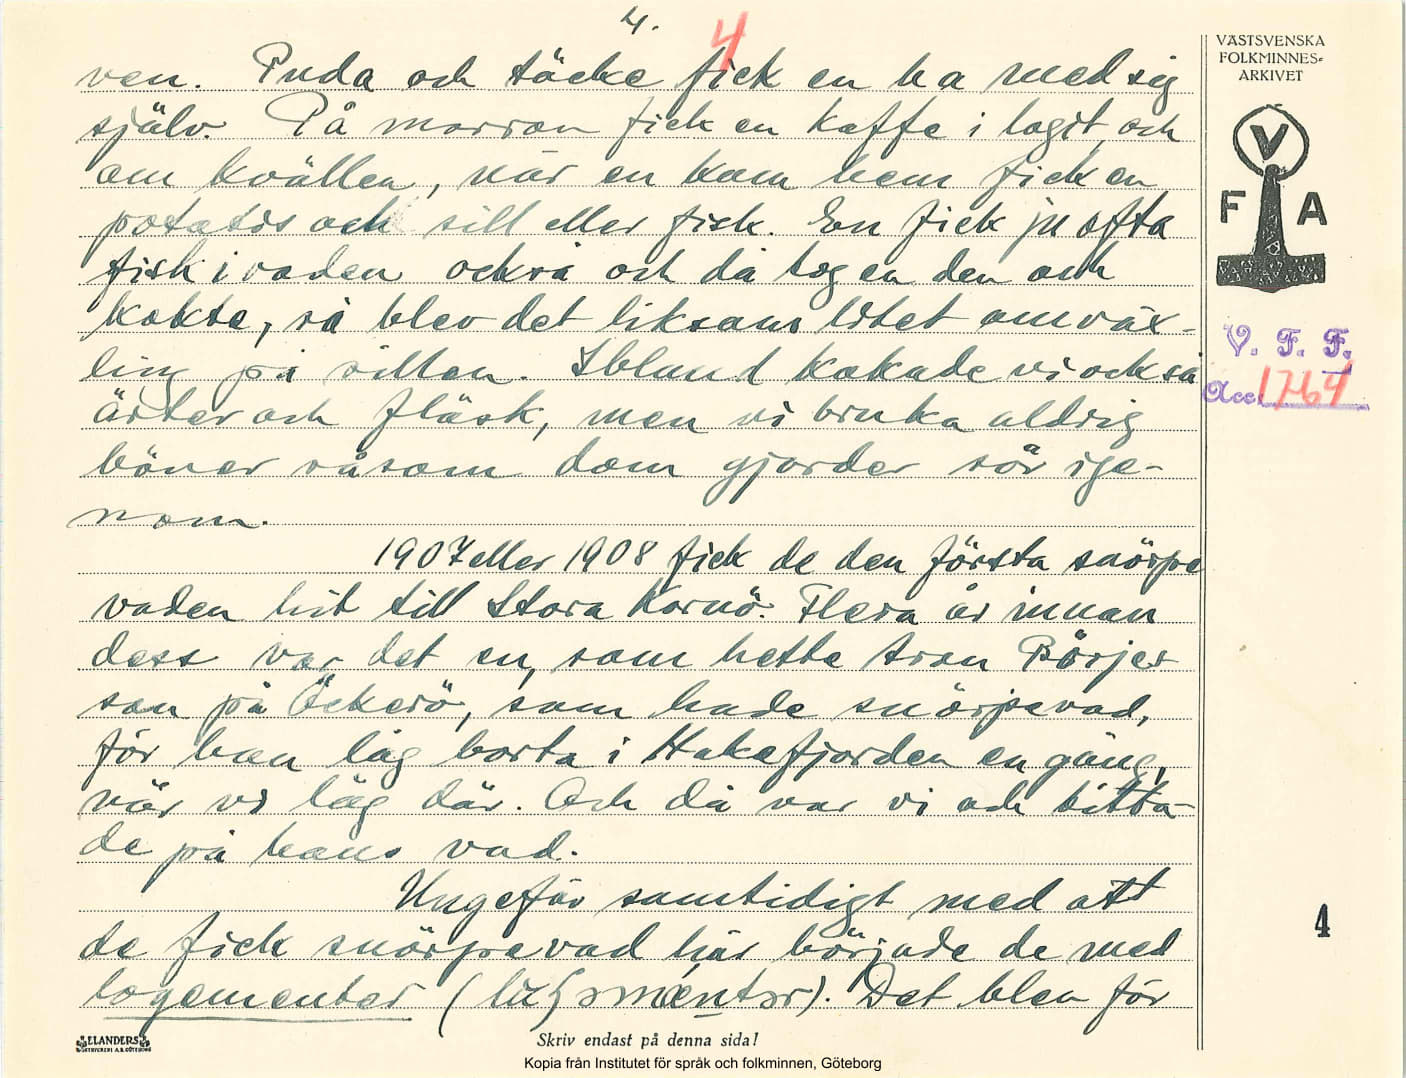 4.
4
ven. Puda och täcke fick en ha med sig
själv. På morron fick en kaffe i laget, och
om kvällen, när en kom hem fick en
potatis och sill eller fisk. En fick ju ofta
fisk i vaden också och då tog en den och
kokte, så blev det liksom litet omväx-
ling på sillen. Ibland kokade vi också
ärter och fläsk, men vi bruka aldrig
böner såsom dom gjorder sör ige-
nom.
1907 eller 1908 fick de den första snörpe
vaden hit till Stora Kornö. Flera år innan
dess var det en, som hette Aron Börjes-
son på Öckerö, som hade snörpevad,
för han låg borta i Hakefjorden en gång,
när vi låg där. Och då var vi och titta-
de på hans vad.
Ungefär samtidigt med att
de fick snörpevad här började de med
logementer ( ). Det blev för
VÄSTSVENSKA
FOLKMINNES-
ARKIVET
V
F A
V. F. F.
Acc. 1764
4
ELANDERS
BOKTRYCKERI A.B. GÖTEBORG
Skriv endast på denna sida!
Kopia från Institutet för språk och folkminnen, Göteborg